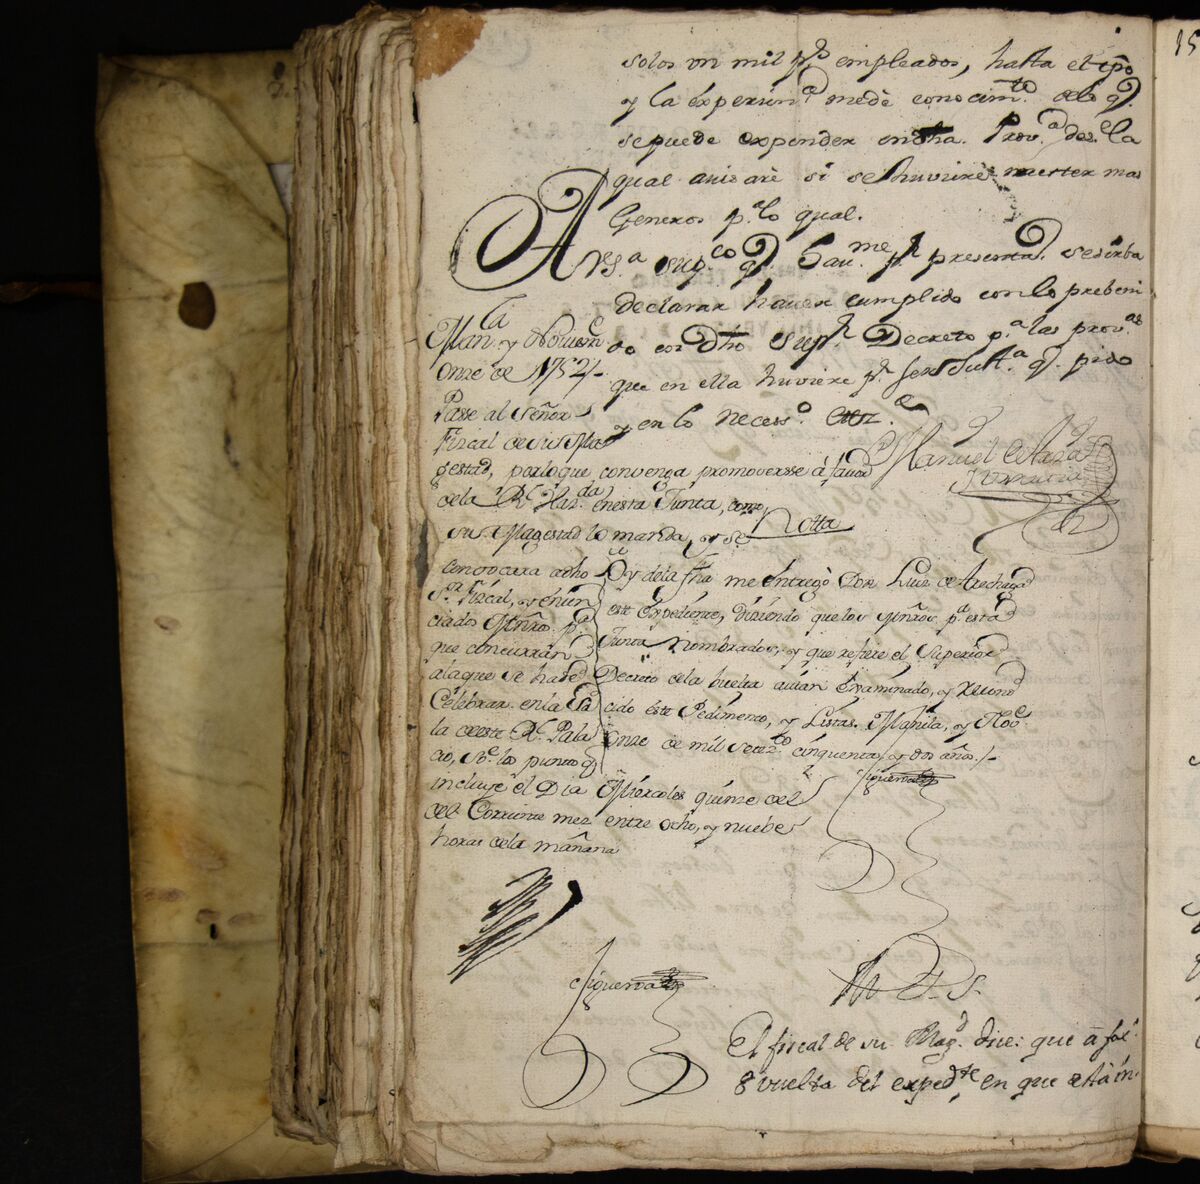 solos un mil p.s empleados, hasta el tpõ
y la experien.a medè conocim.to delo q.
sepuede expender en dha Prov.a des.e la
qual avisarè si se huviere menester mas
Generos p.a lo qual.
A V.s.a sup.co q. hav.me p.r presentad. se sirba
declarar haver cumplido con lo prebeni
do con dho sup.r Decreto p.a las prov.as
que en ella huviere p.r ser Just.a q. pido
y en lo necess.o etz.a
Manuel
Man.la y Noviem.e
onze de 1752/-
Passe al señor
Fiscal de su Ma
gestad, por lo que convenga promoversse à favor
dela R.l Haz.da en esta Junta, como
su Magestad lo manda, y se
convocara a dho
S.r Fiscal, y enun
ciados Mrnos. p.a
que concurran
ala que se ha de
Celebrar en la Sa
la de este R.l Pala
cio, s.re los puntos q
incluye el Dia Miércoles quinze del
del Corriente mez entre ocho, y nuebe
horas dela mañana
Notta
Oy dela fha me entregò Don Luiz de Arechaga
este Expediente, diziendo que los Mrnos p.a esta
Junta nombrados, y que refiere el Superior
Decreto dela buelta avian Examinado, y recono
cido este Pedimento, y Listas. Manila, y Nov.e
onze de mil setez.tos cinquenta y dos años./-
Figueroa
Figueroa
M. P. S.
El fiscal de su Mag.d dice: que à fox.
8 vuelta del exped.te en que està in-
15